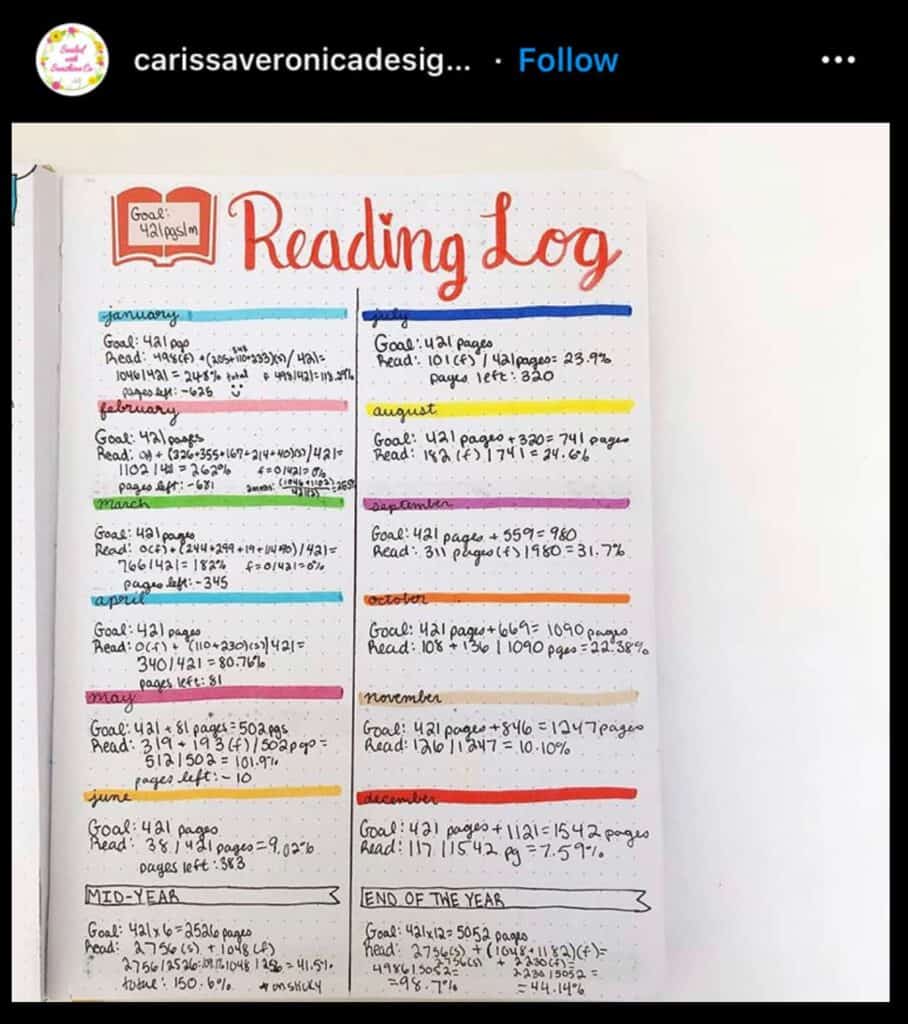 Sealed
with
Sunshine Co
carissaveronicadesig... · Follow
Goal:
421pgs/m
Reading Log
january
Goal: 421 pgs
Read: 498(f) + (205+110+233)(s)/421=
548
1046/421 = 248% total f 498/421=118.29%
pages left: -625
february
Goal: 421 pages
Read: 0f + (326+355+167+214+40)(s)/421=
1102/421 = 262% f=0/421=0%
pages left: -681
(1046+1102)
march
Goal: 421 pages
Read: 0(f) + (244+299+19+
766/421= 182% f=0/421=0%
pages left: -345
april
Goal: 421 pages
Read: 0(f) + (110+230)(s)/421=
340/421 = 80.76%
pages left: 81
may
Goal: 421 + 81 pages = 502pgs
Read: 319 + 193(f)/502pgs =
512/502 = 101.9%
pages left: - 10
june
Goal: 421 pages
Read: 38/421 pages = 9.02%
pages left: 383
MID-YEAR
Goal: 421x6=2526 pages
Read: 2756(s) + 1048(f)
2756/2526= 1048/256 = 41.5%
total: 150.6% * on sticky
july
Goal: 421 pages
Read: 101(f) / 421pages= 23.9%
pages left: 320
august
Goal: 421 pages + 320= 741 pages
Read: 182(f)/741 = 24.6%
september
Goal: 421 pages + 559= 980
Read: 311 pages(f)/980 = 31.7%
october
Goal: 421 pages + 669= 1090 pages
Read: 108 + 136 / 1090 pges = 22.38%
november
Goal: 421 pages + 846 = 1247 pages
Read: 126/1247 = 10.10%
december
Goal: 421 pages + 1121= 1542 pages
Read: 117/1542 pg = 7.59%
END OF THE YEAR
Goal: 421x12= 5052 pages
Read: 2756(s) + (1048+1182)(f)=
2756(s) + 2230(f)=
4986/5052= 2230/5052 =
=98.7% = 44.14%